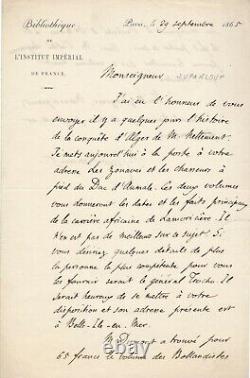 Bibliothèque
DE
L'INSTITUT IMPÉRIAL
DE FRANCE.
Paris, le 29 septembre 1865
Monseigneur, DUPANLOUP
J'ai eu l'honneur de vous
envoyer il y a quelques jours l'histoire
de la conquête d'Alger de M. Nettement.
Je mets aujourd'hui à la poste à votre
adresse Les Zouaves et les chasseurs à
pied du Duc d'Aumale. Les deux volumes
vous donneront les dates et les faits principaux
de la carrière africaine de Lamoricière. Il
n'en est pas de meilleurs sur ce sujet. Si
vous désiriez quelques détails de plus
la personne la plus compétente pour vous
les fournir serait le général Trochu. Il
serait heureux de se mettre à votre
disposition et son adresse présente est
à Belle-Ile-en-Mer.
M. a trouvé pour
65 francs le volume des Bollandistes
© stamps-fr